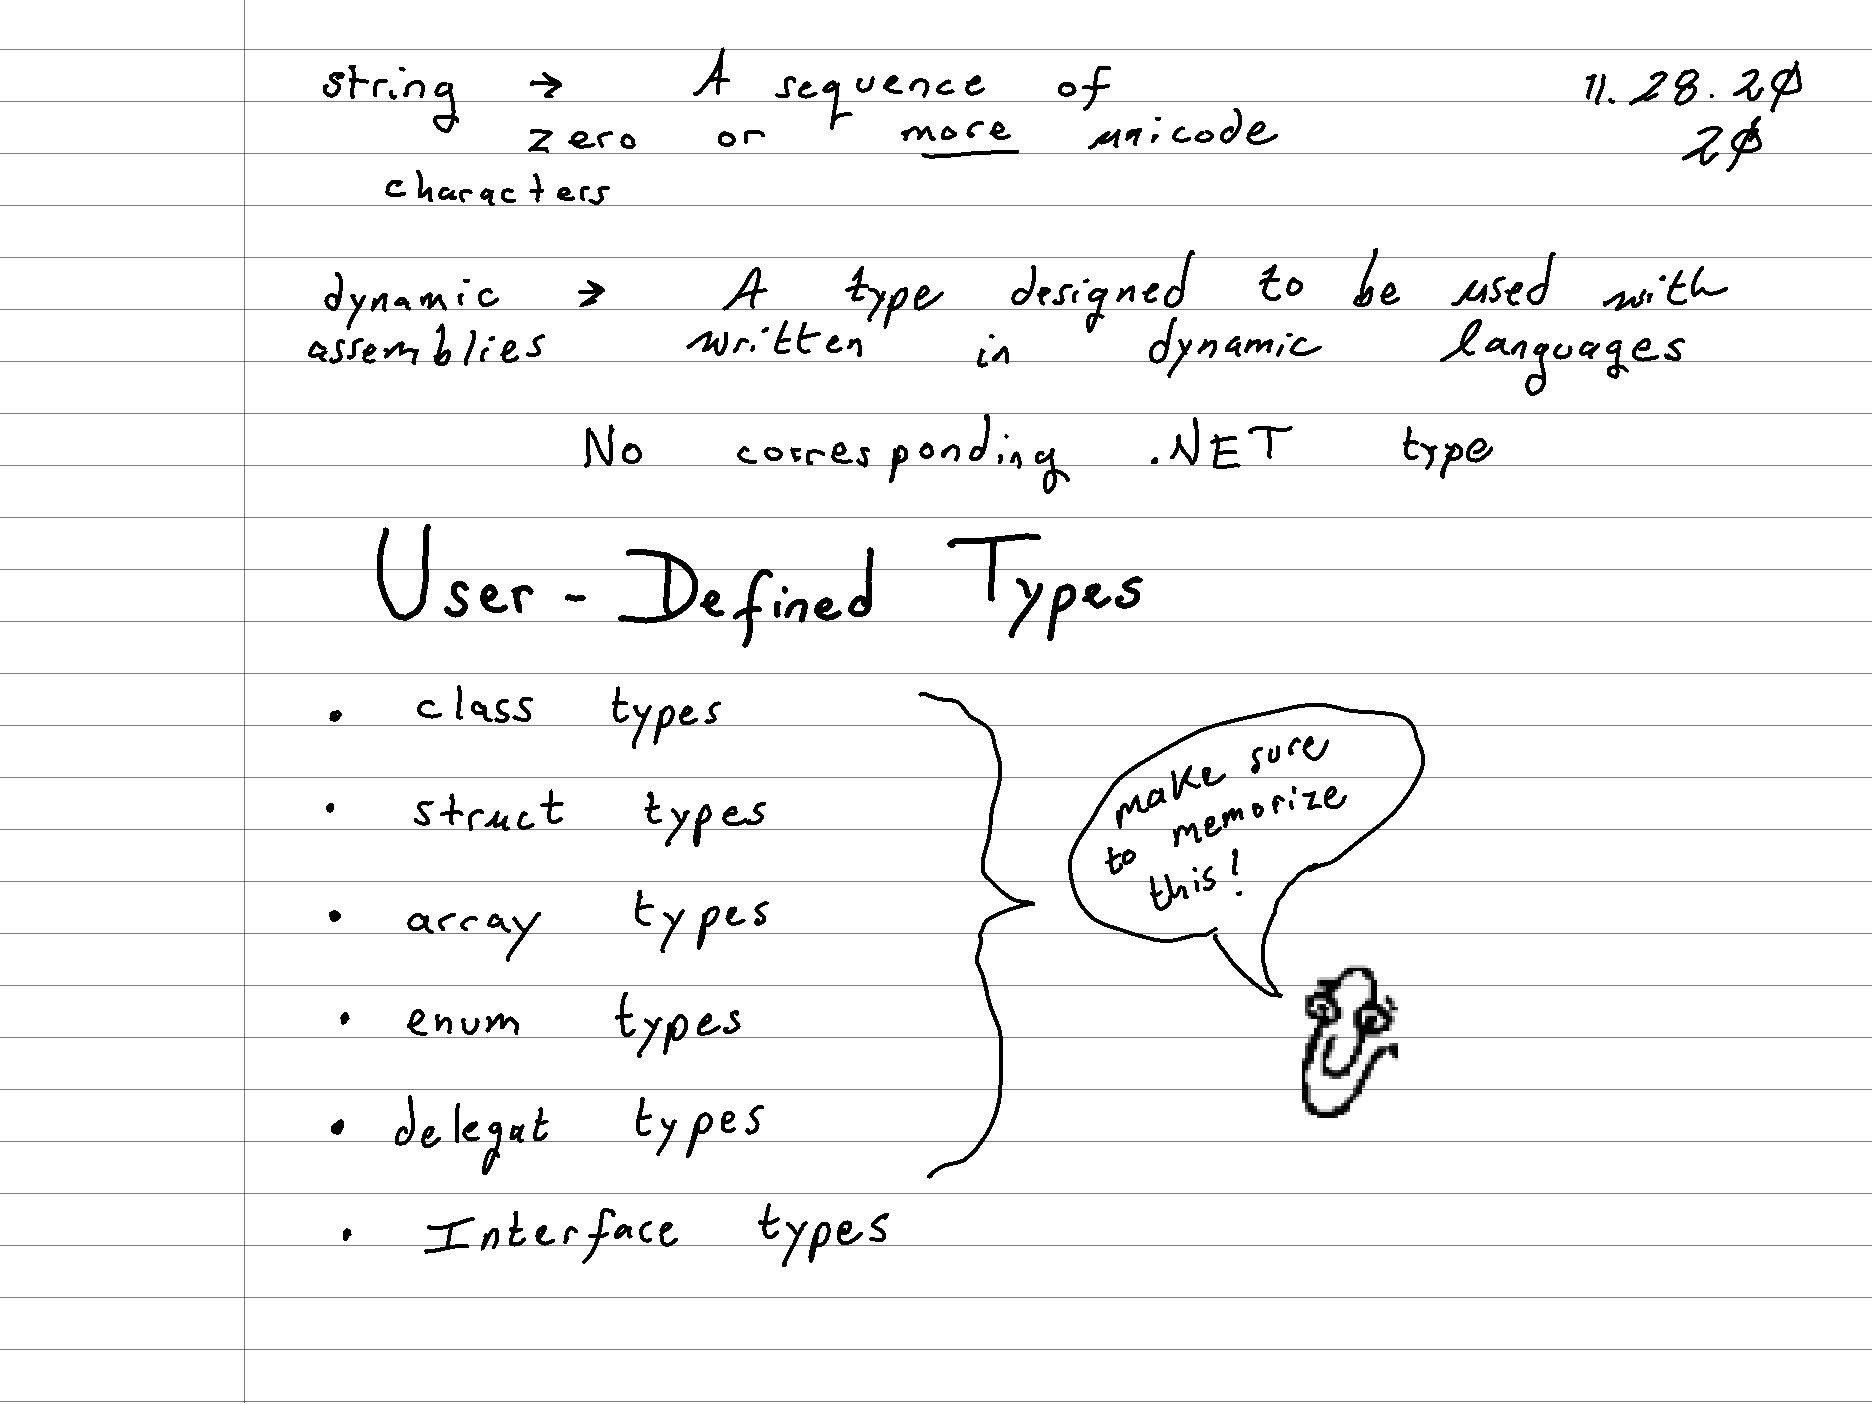 string → A sequence of
zero or more unicode
characters
11.28.20
20
dynamic → A type designed to be used with
assemblies written in dynamic languages
No corresponding .NET type
User-Defined Types
• class types
• struct types
• array types
• enum types
• delegat types
• Interface types
make sure
to memorize
this!